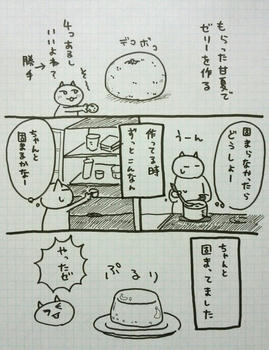 もらった甘夏で
ゼリーを作る
デコボコ
そ〜
4つあるし
いいよね?
勝手
うーん
固まらなかったら
どうしよー
作ってる時
ずっとこんなん
ちゃんと
固まるかなー
ちゃんと
固まってました
ぷるり
やったぜ